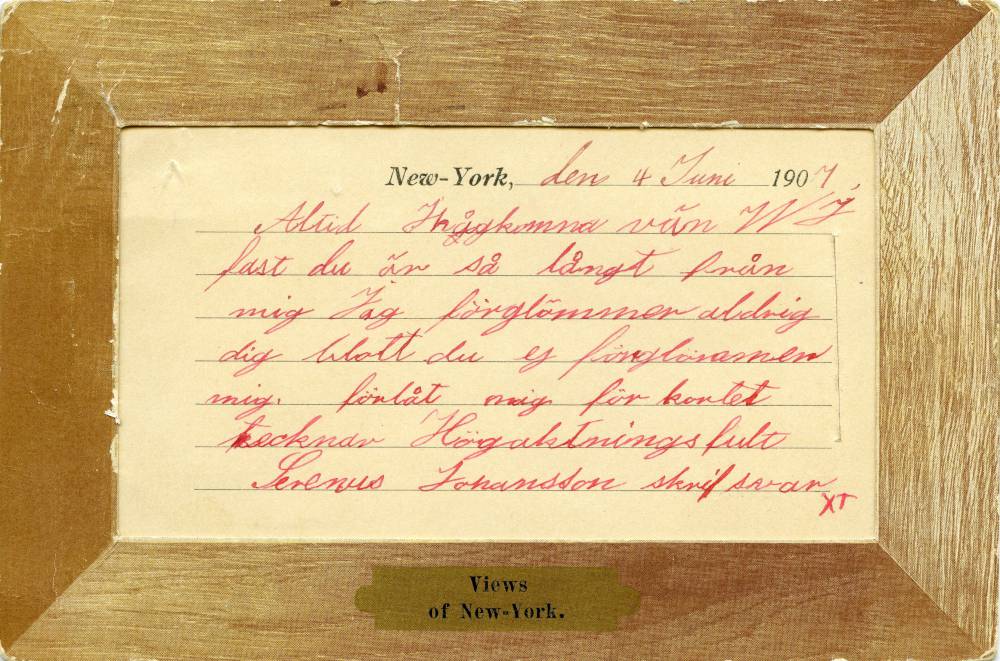 New-York, den 4 Juni 1907,
Altid Ihågkomna vän W J
fast du är så långt från
mig Jag förglömmer aldrig
dig blott du ej förglömmer
mig. förlåt mig för kortet
tecknar Högaktningsfult
Serenus Johansson skrif svar
XT
Views
of New-York.